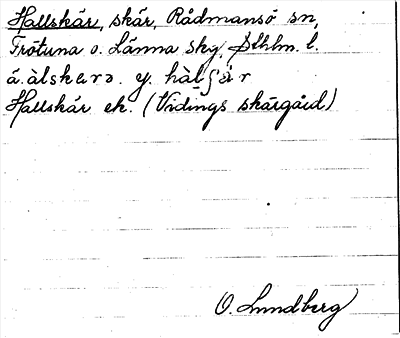 Hallskär, skär, Rådmansö sn,
Frötuna o. Länna skg, Sthlm. l.
ä. àlskærə. y. hàlʃæ̀r
Hallskär ek. (Vidings skärgård)
O. Lundberg